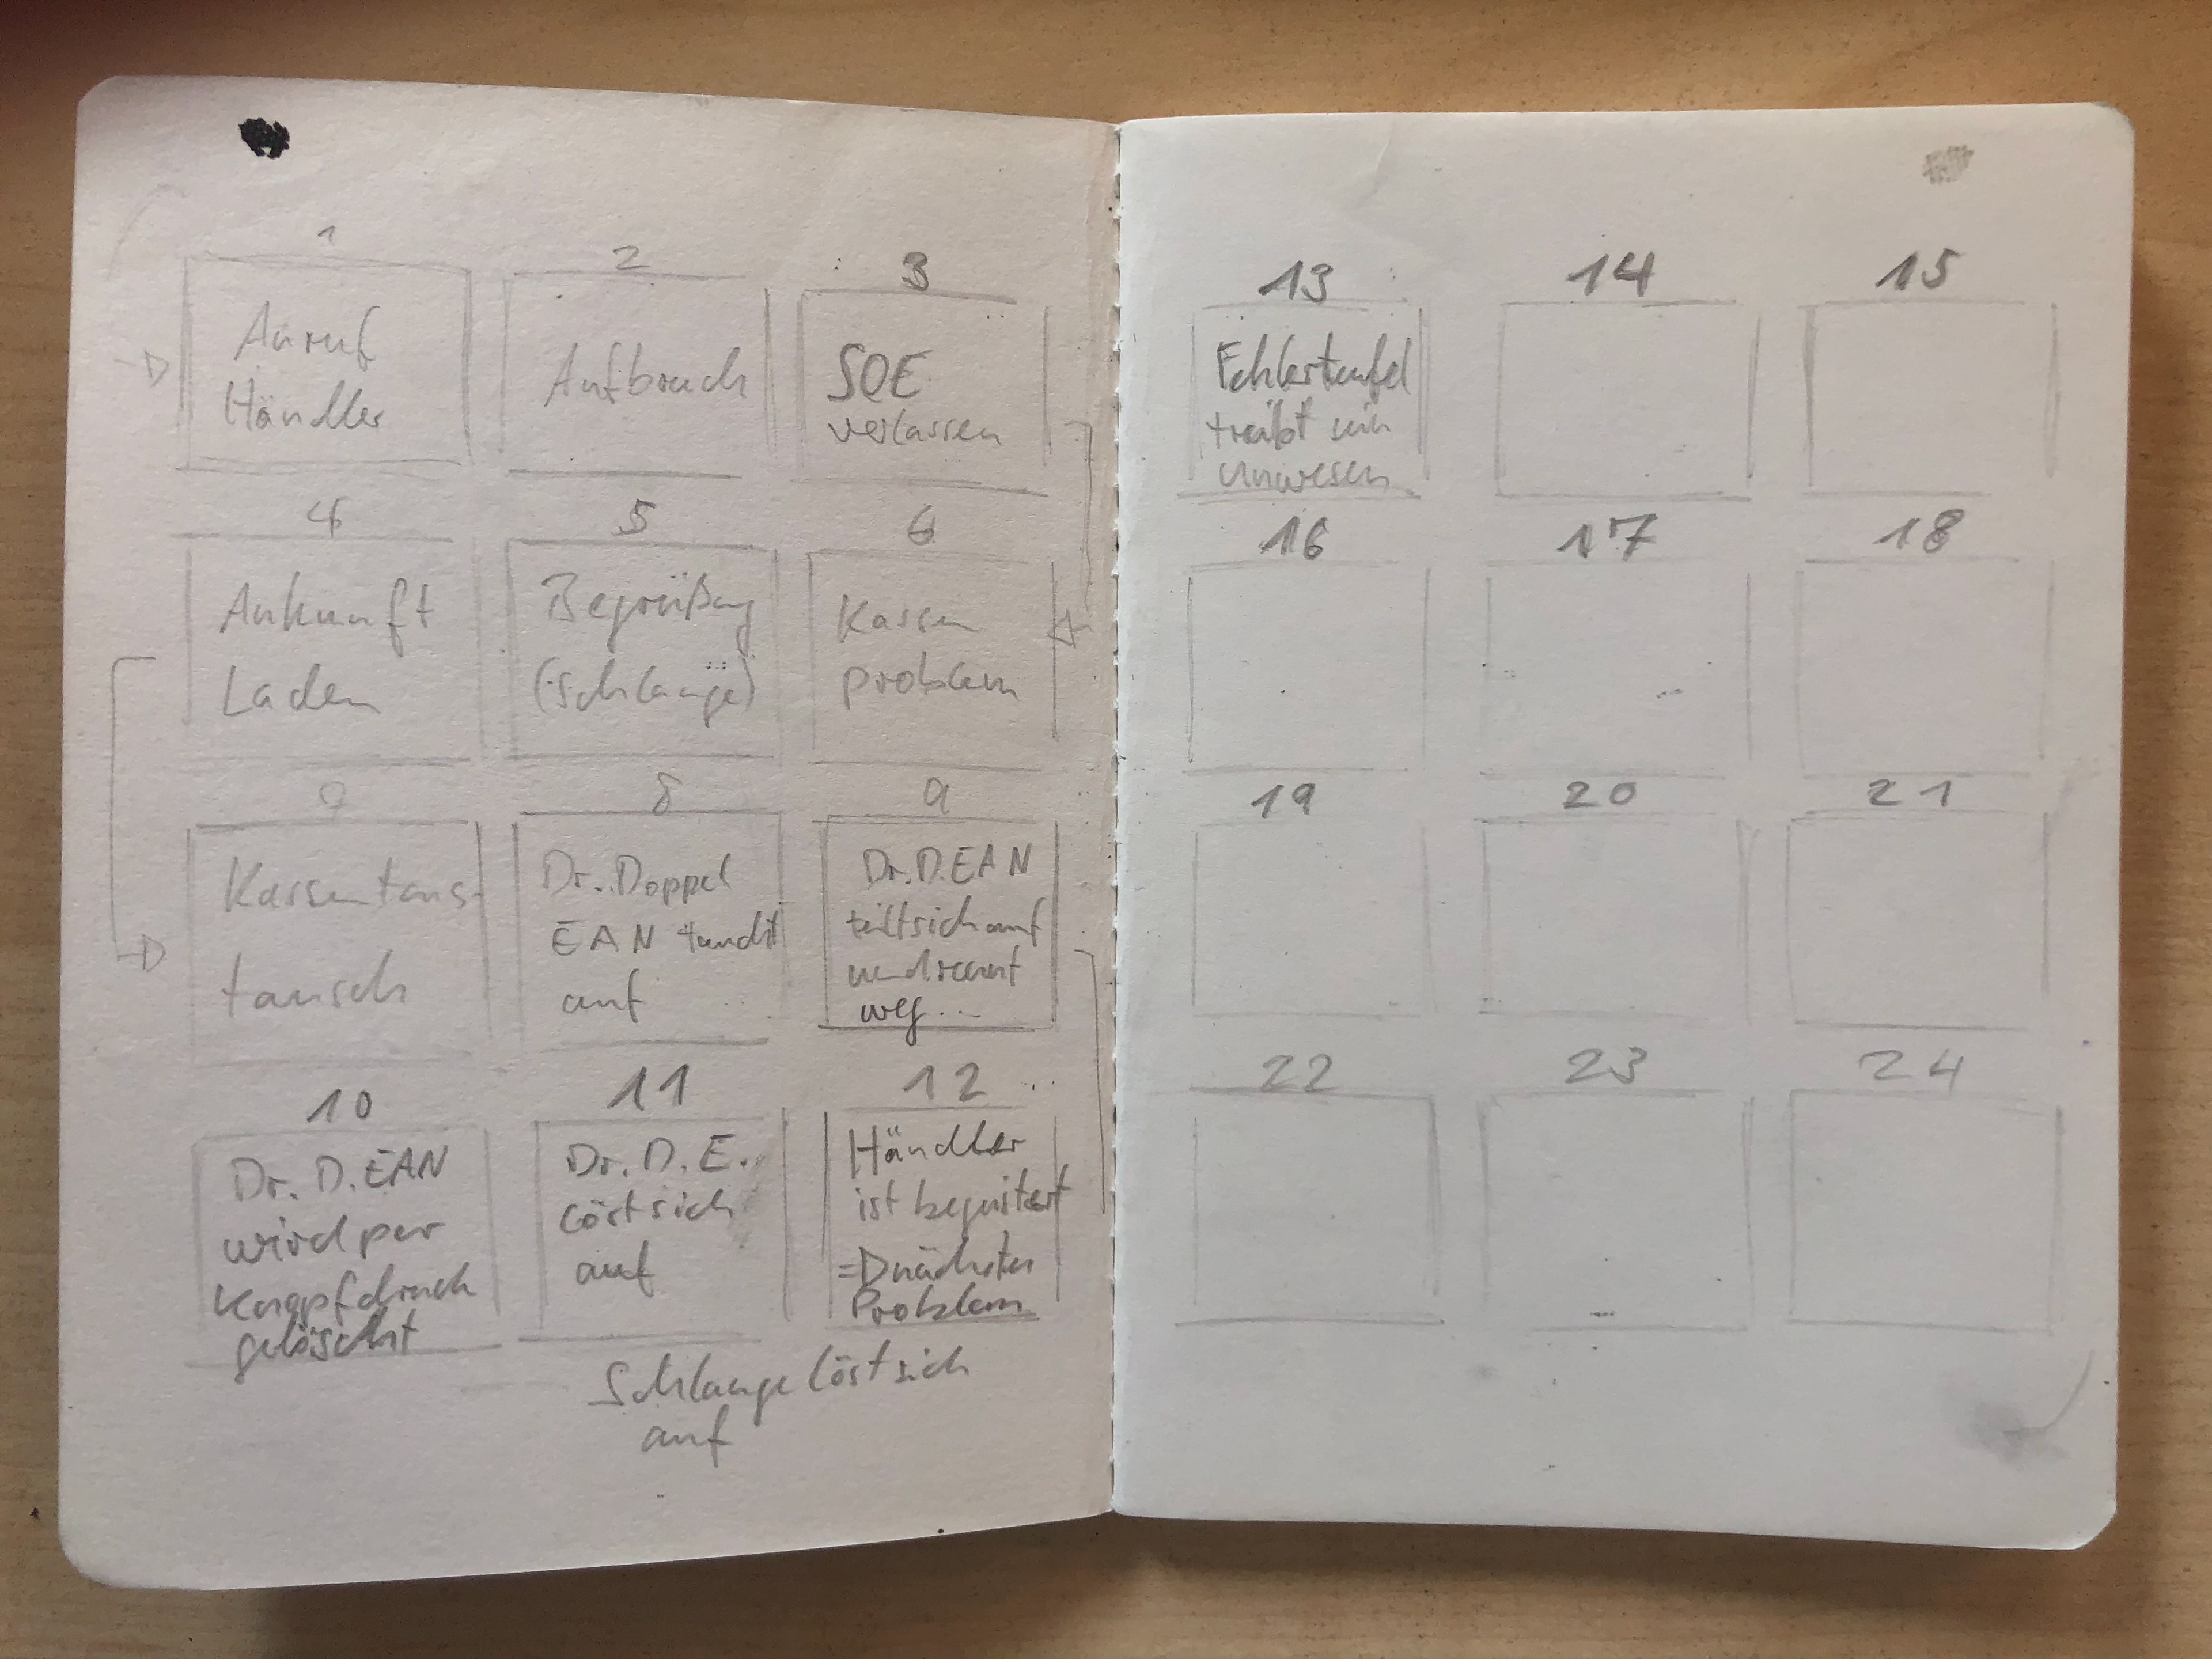 1
Anruf
Händler
2
Aufbruch
3
SOE
verlassen
4
Ankunft
Laden
5
Begrüßung
(Schlange)
6
Kassen
problem
7
Kassentaus-
tausch
8
Dr. Doppel
EAN taucht
auf
9
Dr. D. EAN
teilt sich auf
und rennt
weg...
10
Dr. D. EAN
wird per
Knopfdruck
gelöscht
11
Dr. D. E.
löst sich
auf
12
Händler
ist begeistert
=D nächstes
Problem
Schlange löst sich
auf
13
Fehlerteufel
treibt sein
Unwesen
14
15
16
17
18
19
20
21
22
23
24